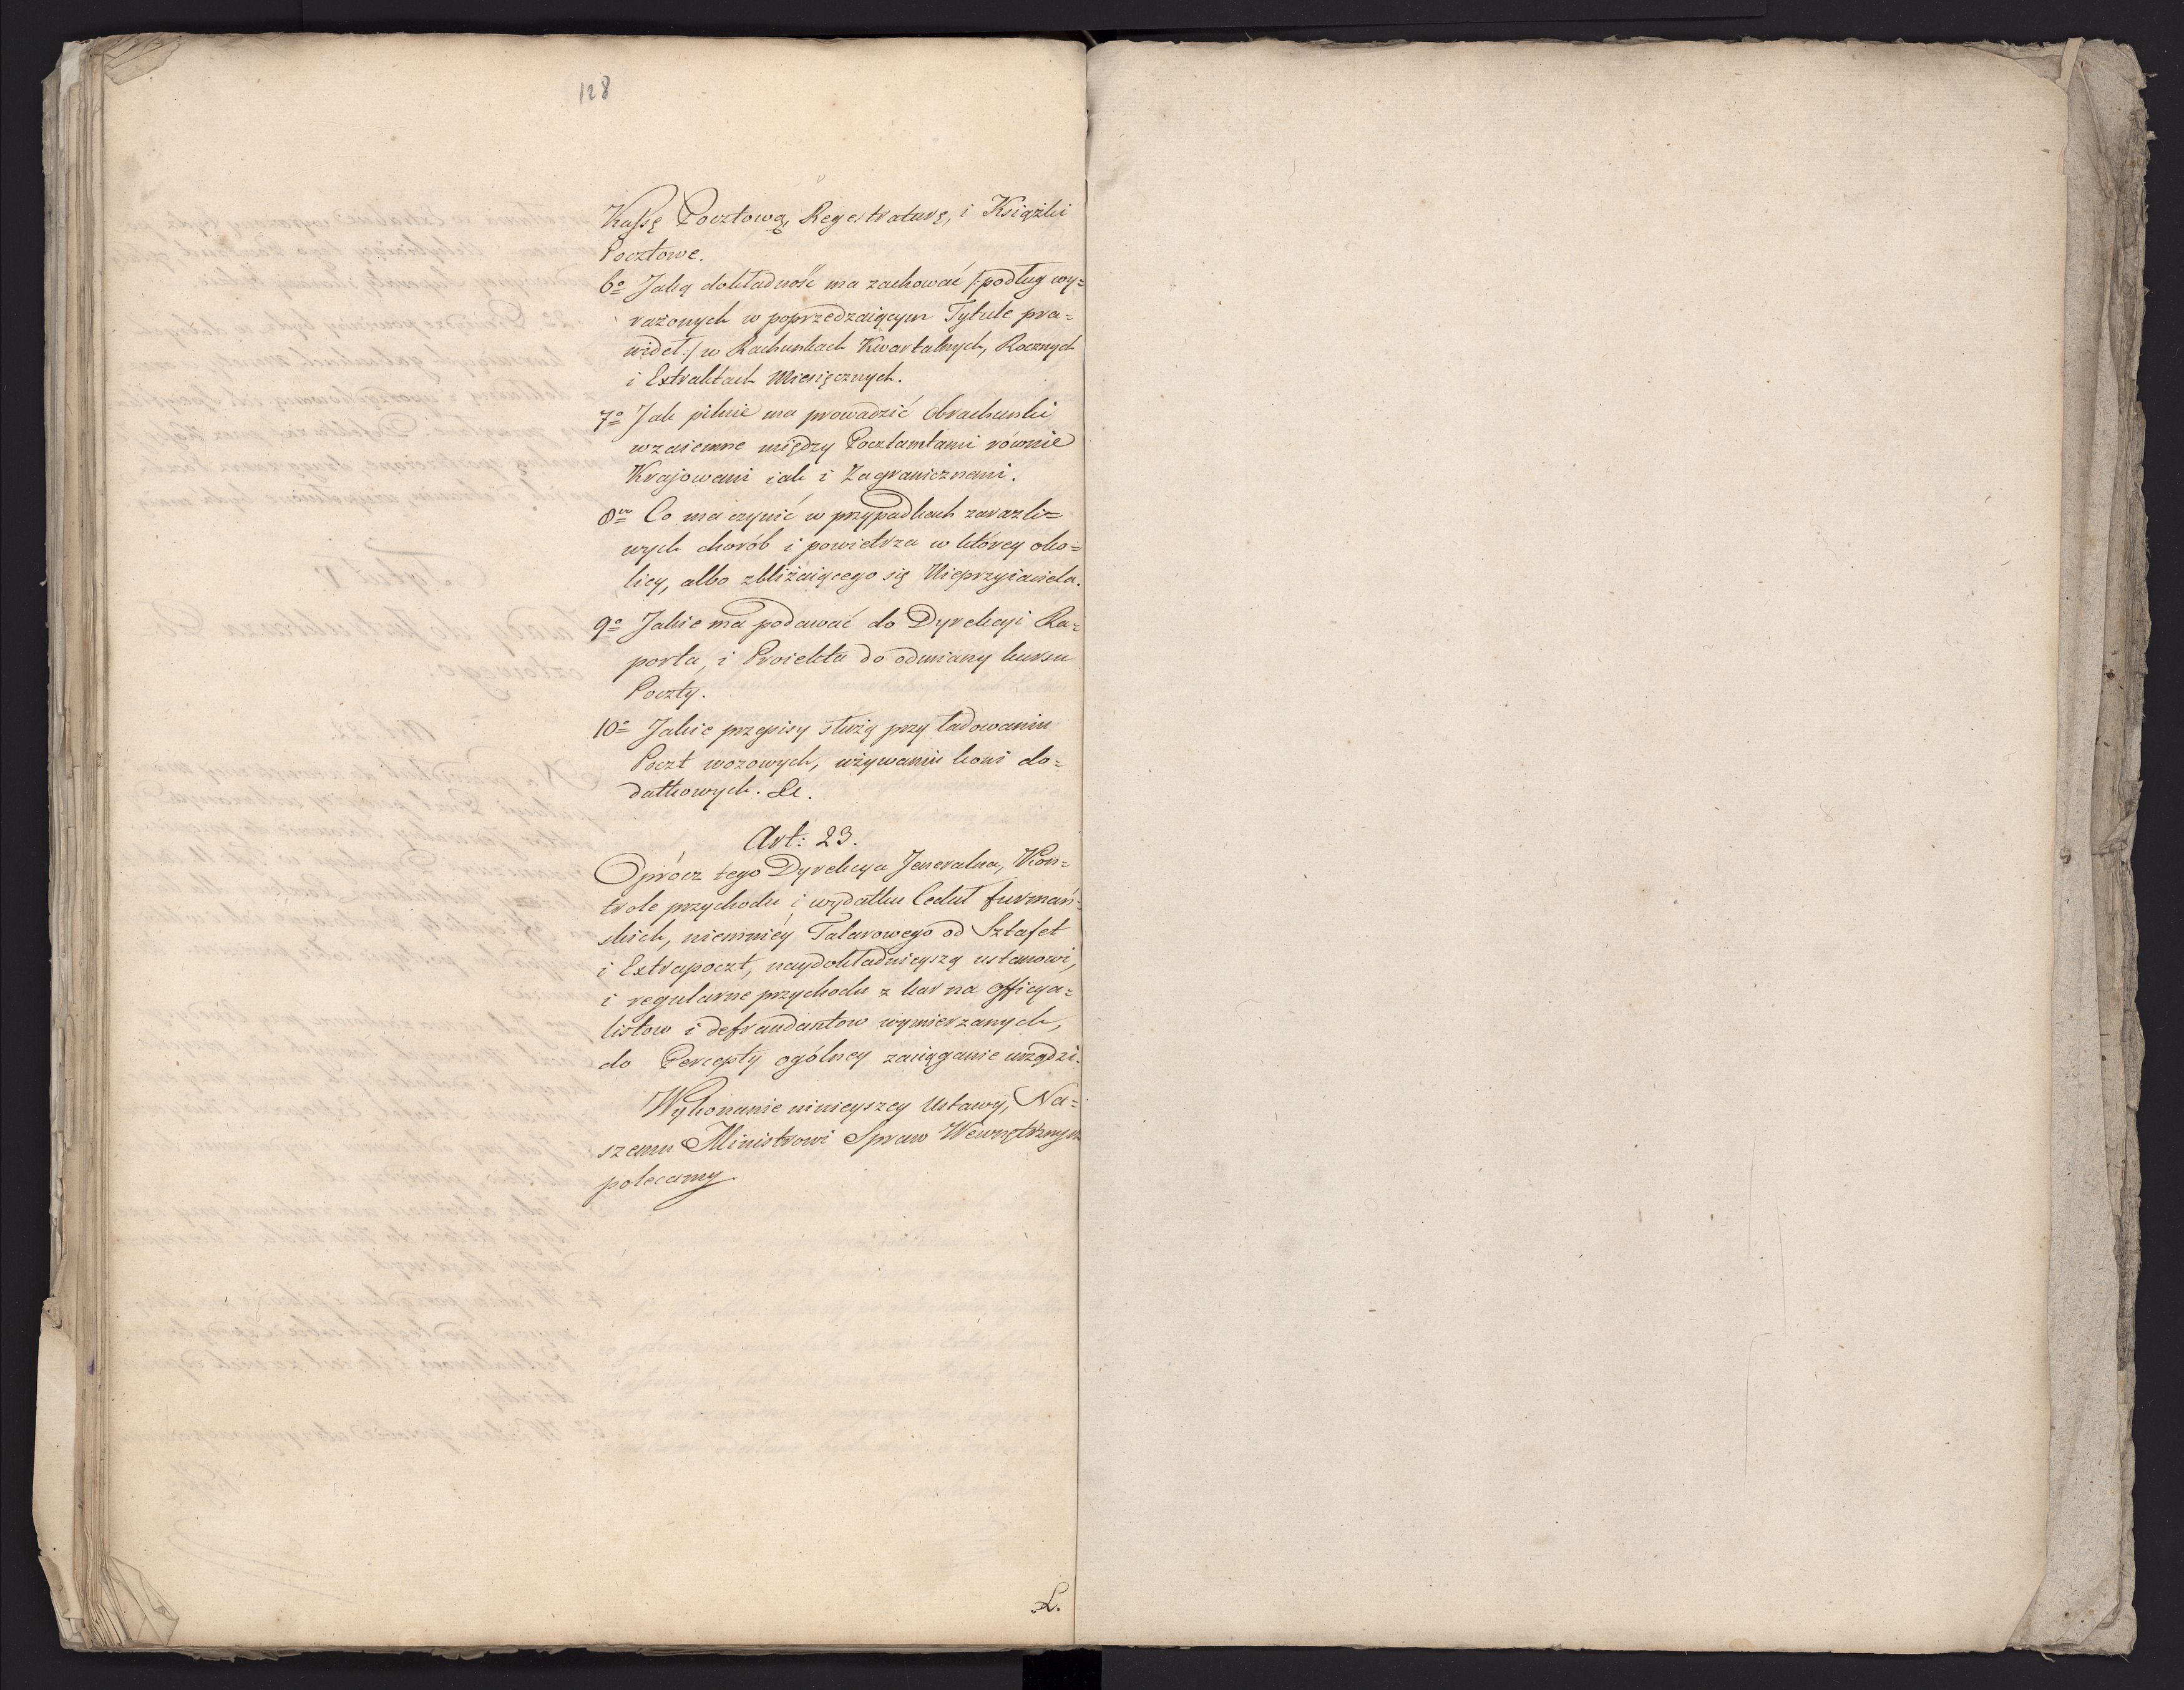 128
Kassę Pocztową, Regestraturę, i Książki
Pocztowe.
6o Jaką dokładność ma zachować /:podług wy=
rażonych w poprzedzaiącym Tytule pra=
wideł:/ w Rachunkach Kwartalnych, Rocznych
i Extraktach Miesięcznych.
7o Jak pilnie ma prowadzić Obrachunki
wzaiemne między Pocztamtami równie
Krajowemi iak i Zagranicznemi.
8vo Co ma czynić w przypadkach zaraźli=
wych chorób i powietrza w którey oko=
licy, albo zbliżaiącego się Nieprzyiaciela.
9o Jakie ma podawać do Dyrekcyi Ra=
porta, i Proiekta do odmiany kursu
Poczty.
10o Jakie przepisy służą przy ładowaniu
Poczt wozowych, używaniu koni do=
datkowych. &c.
Art: 23.
Oprócz tego Dyrekcya Jeneralna, Kon=
trole przychodu i wydatku Cedul furmań=
skich, niemniéy Talarowego od Sztafet
i Extrapoczt, naydokładnieyszą ustanowi,
i regularne przychodu z kar na Officya=
listow i defraudantow wymierzanych,
do Percepty ogólney zaciąganie urządzi.
Wykonanie ninieyszey Ustawy, Na=
szemu Ministrowi Spraw Wewnętrznych
polecamy.